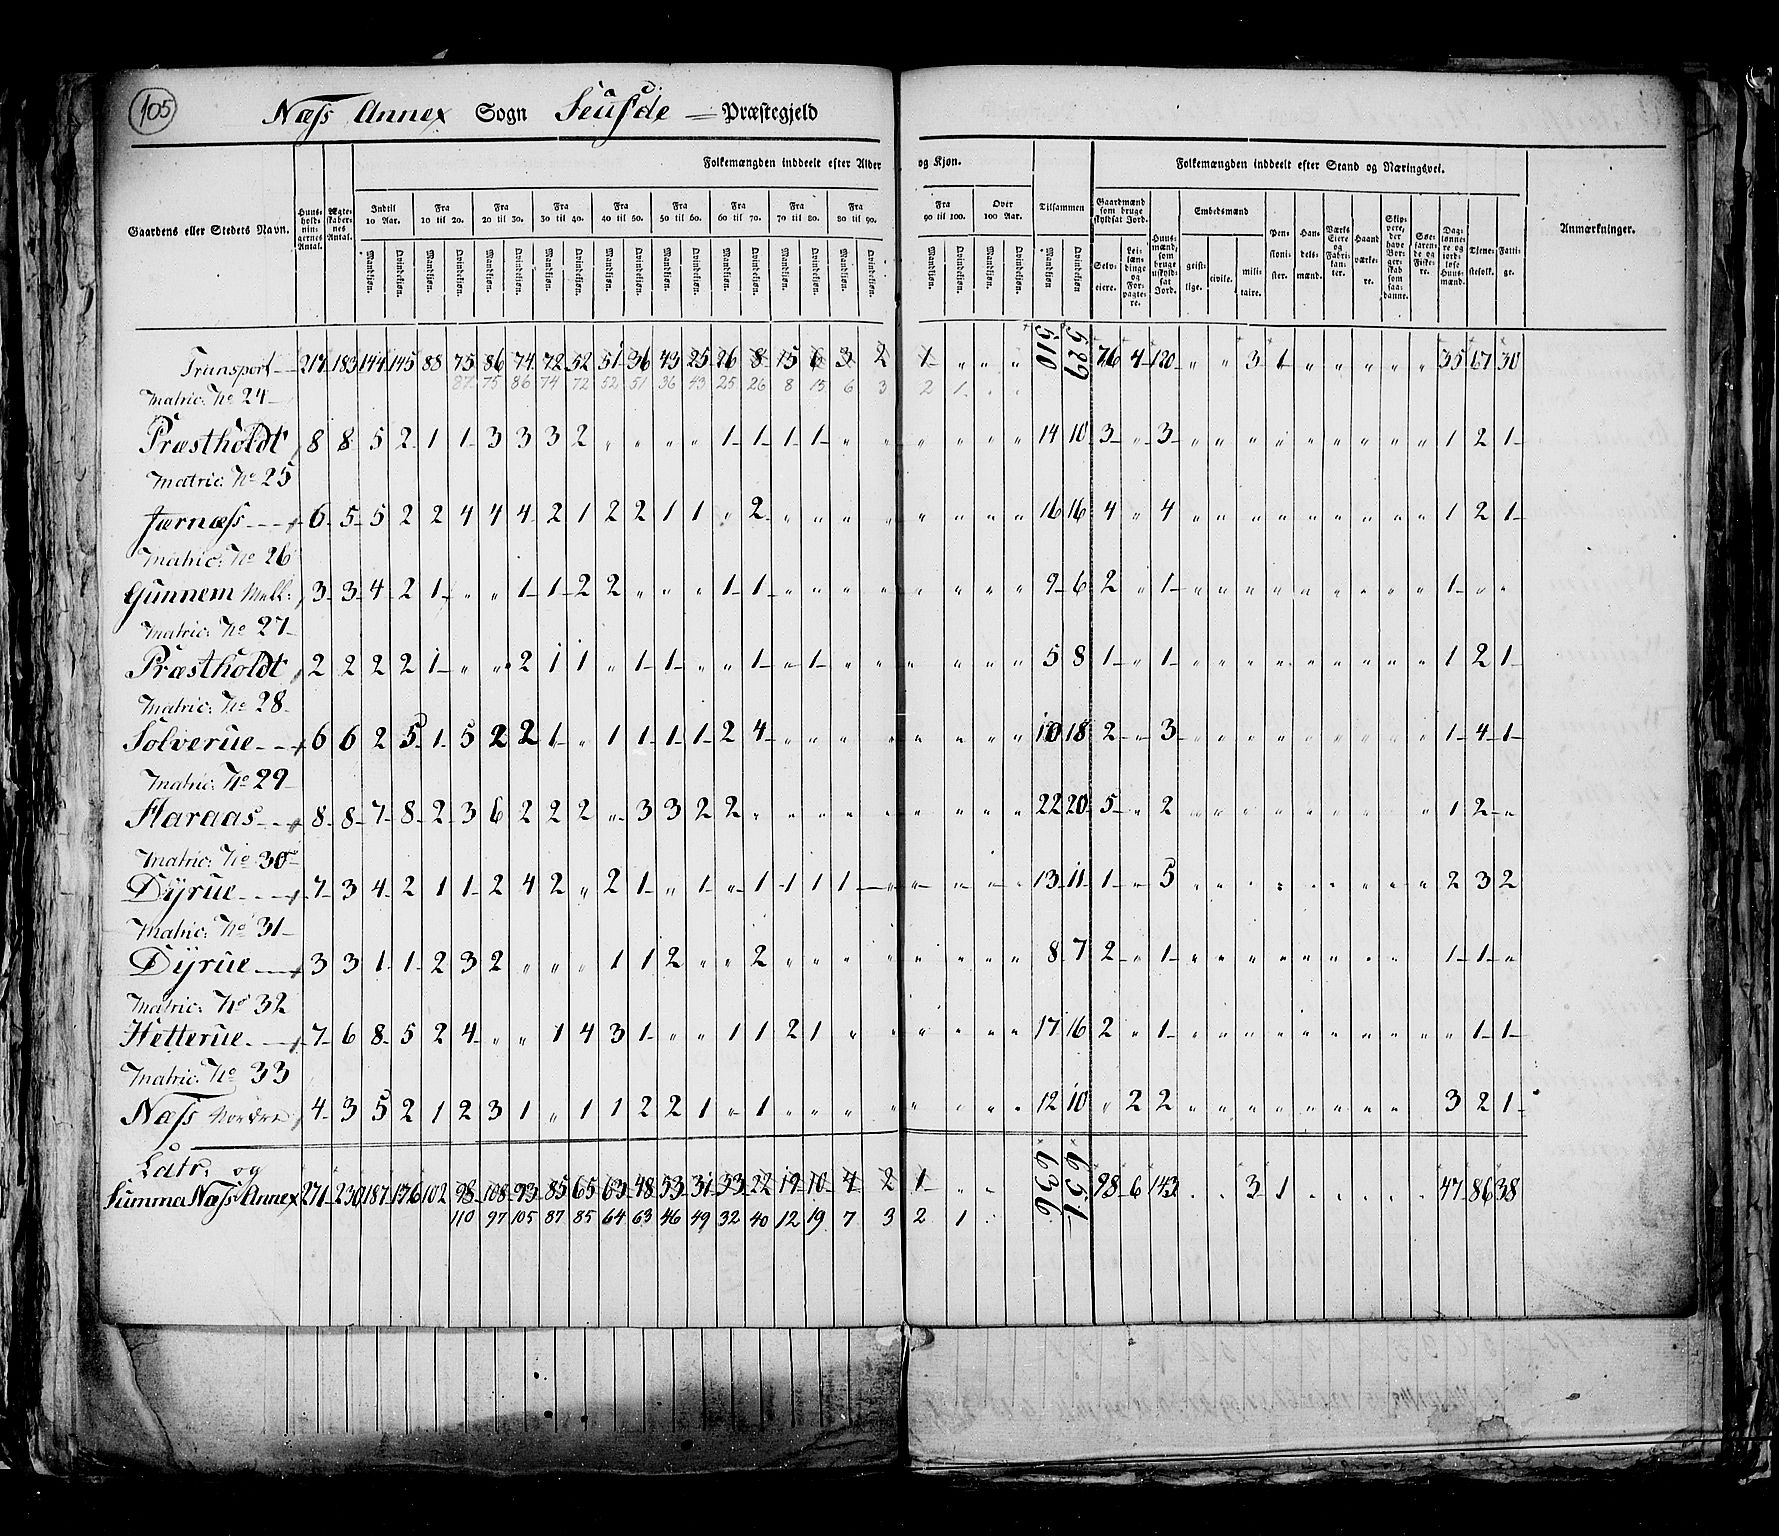 105
Næss Annex Sogn Seufde — Præstegjeld
Folkemængden inddeelt efter Alder og Kjøn. Folkemængden inddeelt efter Stand og Næringsvei.
Gaardens eller Stedets Navn. Huus-holdnin-gernes Antal. Ægte-skaber-nes Antal. Indtil 10 Aar. Fra 10 til 20. Fra 20 til 30. Fra 30 til 40. Fra 40 til 50. Fra 50 til 60. Fra 60 til 70. Fra 70 til 80. Fra 80 til 90. Fra 90 til 100. Over 100 Aar. Tilsammen Gaardmænd som bruge skyldsat Jord. Huus-mænd, som bruge uskyld-sat Jord. Embedsmænd Pen-sioni-ster. Han-dels-mænd. Værks Eiere og Fabri-kan-ter. Haand værke-re. Skip-pere, der have Bor-ger-skab som saa-danne. Søe-farende og Fiske-re. Dag-lønne-re og jord-løse Huus-mænd. Tjene-stefolk. Fatti-ge. Anmærkninger.
Mandkjøn. Qvindekjøn. Mandkjøn. Qvindekjøn. Mandkjøn. Qvindekjøn. Mandkjøn. Qvindekjøn. Mandkjøn. Qvindekjøn. Mandkjøn. Qvindekjøn. Mandkjøn. Qvindekjøn. Mandkjøn. Qvindekjøn. Mandkjøn. Qvindekjøn. Mandkjøn. Qvindekjøn. Mandkjøn. Qvindekjøn. Mandkjøn. Qvindekjøn. Selv-eiere. Lei-læn-dinge og For-pagte-re. geist-lige. civile. mili-taire.
Transport 217 183 144 145 88 75 86 74 72 52 51 36 43 25 26 8 15 6 3 2 1 „ „ „ 510 529 76 4 120 „ „ 3 1 „ „ „ „ „ 35 67 30
87 75 86 74 72 52 51 36 43 25 26 8 15 6 3 2 1
Matric: No 24
Præstholdt 8 8 5 2 1 1 3 3 3 2 „ „ „ „ 1 1 1 1 „ „ „ „ „ „ 14 10 3 „ 3 „ „ „ „ „ „ „ „ „ 1 2 1
Matric: No 25
Jarnæss 6 5 5 2 2 4 4 4 2 1 2 2 1 1 „ 2 „ „ „ „ „ „ „ „ 16 16 4 „ 4 „ „ „ „ „ „ „ „ „ 1 2 1
Matric: No 26
Gunnem Mell: 3 3 4 2 1 „ „ 1 1 2 2 „ „ „ 1 1 „ „ „ „ „ „ „ „ 9 6 2 „ 1 „ „ „ „ „ „ „ „ „ 1 „ „
Matric: No 27
Præstholdt 2 2 2 2 1 „ „ 2 1 1 „ 1 1 „ „ 1 „ 1 „ „ „ „ „ „ 5 8 1 „ 1 „ „ „ „ „ „ „ „ „ 1 2 1
Matric: No 28
Solverue 6 6 2 5 1 5 2 2 1 „ 1 1 1 1 2 4 „ „ „ „ „ „ „ „ 10 18 2 „ 3 „ „ „ „ „ „ „ „ „ 1 4 1
Matric: No 29
Haraas 8 8 7 8 2 3 6 2 2 2 „ 3 3 2 2 „ „ „ „ „ „ „ „ „ 22 20 5 „ 2 „ „ „ „ „ „ „ „ „ 1 2 „
Matric: No 30
Dyrue 7 3 4 2 1 1 2 4 2 „ 2 1 „ 1 „ 1 1 1 1 „ „ „ „ „ 13 11 1 „ 5 „ „ „ „ „ „ „ „ „ 2 3 2
Matric: No 31
Dyrue 3 3 1 1 2 3 2 „ „ „ 1 1 2 „ „ 2 „ „ „ „ „ „ „ „ 8 7 2 „ 1 „ „ „ „ „ „ „ „ „ 1 1 „
Matric: No 32
Hetterue 7 6 8 5 2 4 „ „ 1 4 3 1 „ „ 1 1 2 1 „ „ „ „ „ „ 17 16 2 „ 1 „ „ „ „ „ „ „ „ „ „ 1 1
Matric: No 33
Næss Nordre 4 3 5 2 1 2 3 1 „ 1 1 2 2 1 „ 1 „ „ „ „ „ „ „ „ 12 10 „ 2 2 „ „ „ „ „ „ „ „ „ 3 2 1
Latr: og
Summa Næss Annex 271 230 187 176 102 98 108 93 85 65 63 48 53 31 33 22 19 10 4 2 1 „ „ 636 651 98 6 143 „ „ 3 1 „ „ „ „ „ 47 86 38
110 97 105 87 85 64 63 46 49 32 40 12 19 7 3 2 1